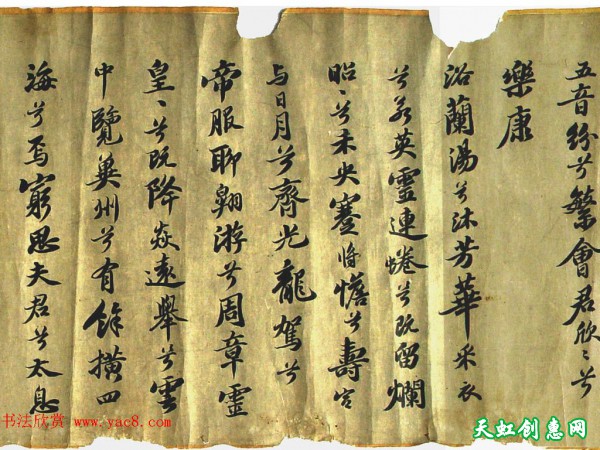 五音紛兮繁會君欣〻兮
樂康
浴蘭湯兮沐芳華采衣
兮若英靈連蜷兮既留爛
昭〻兮未央蹇將憺兮壽宮
与日月兮齊光龍駕兮
帝服聊翱游兮周章靈
皇〻兮既降焱遠舉兮雲
中覽兾州兮有餘橫四
海兮焉窮思夫君兮太息
书法欣赏 www.yac8.com
天虹创惠网